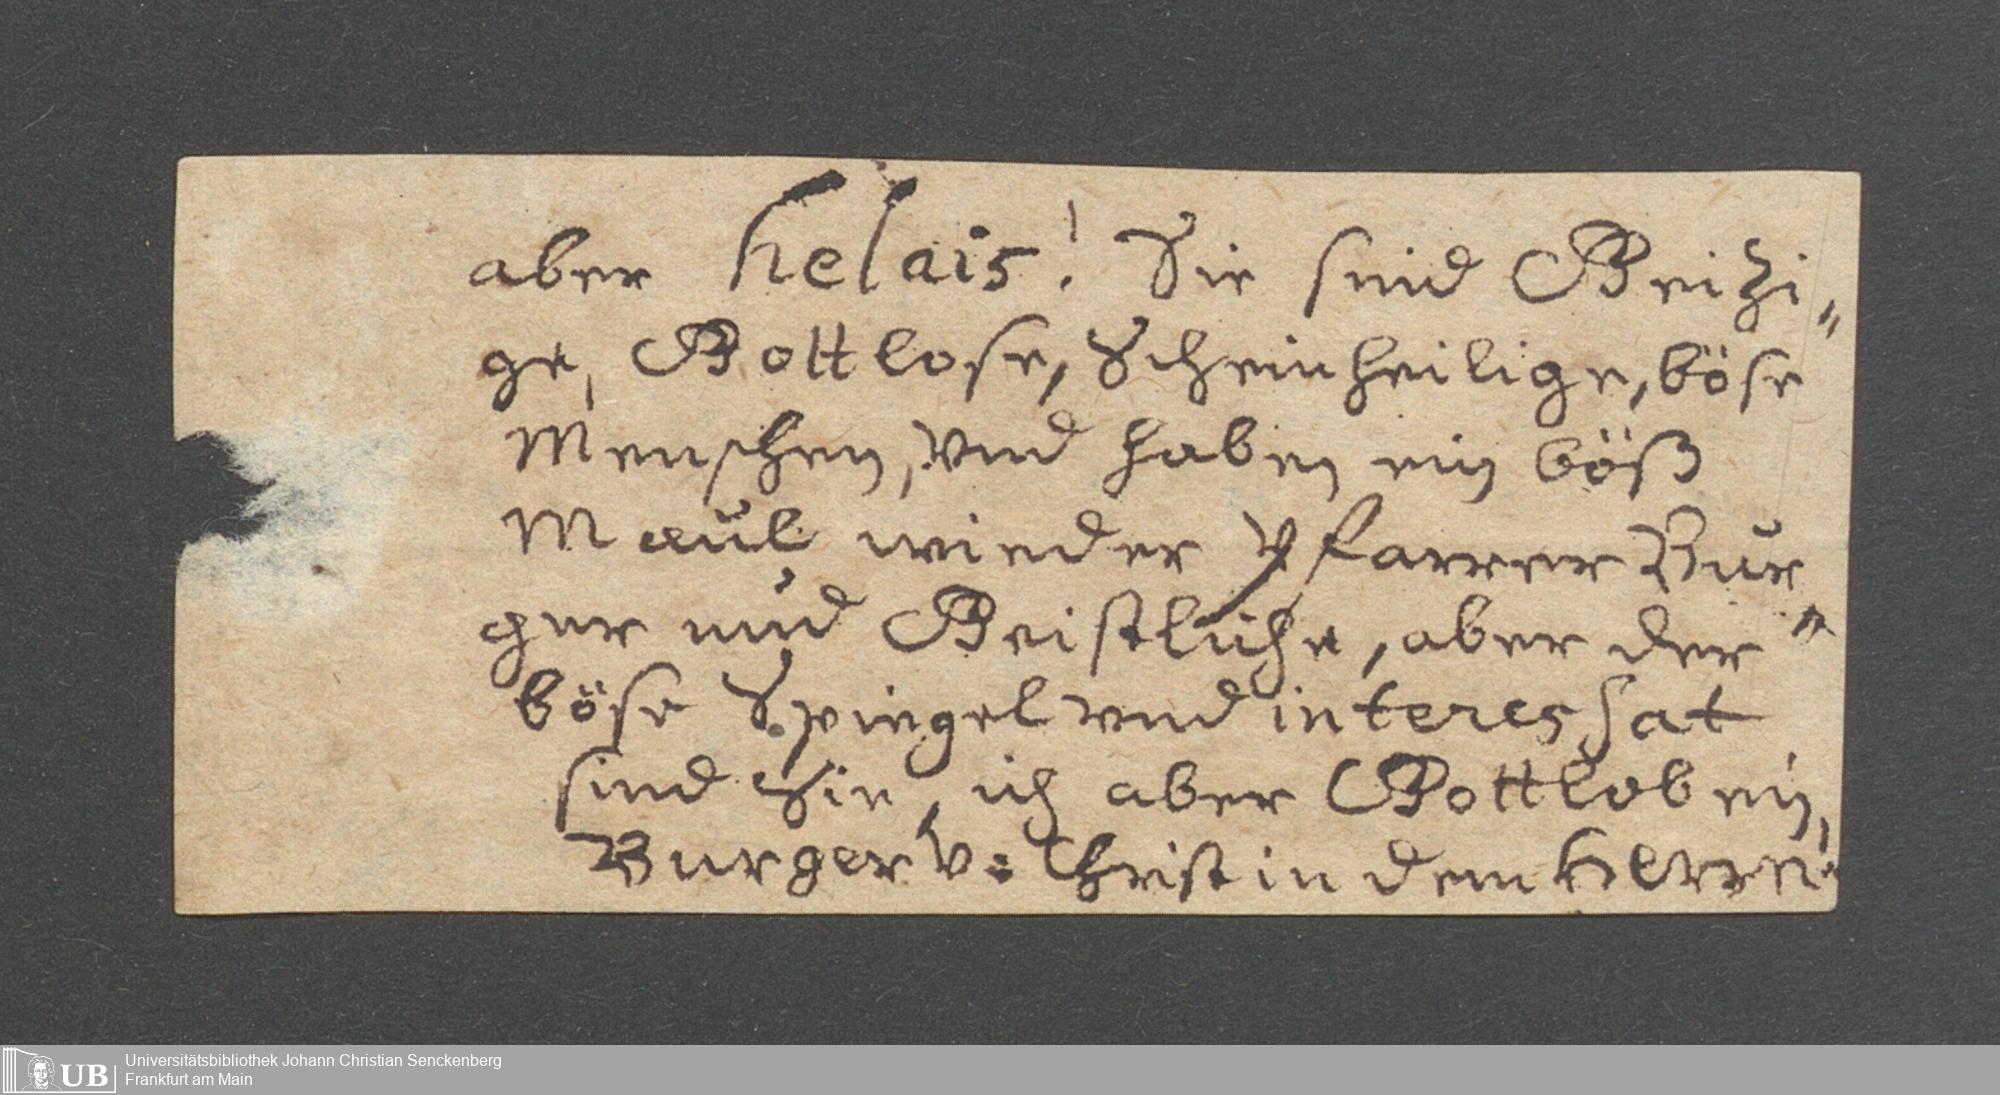 aber helais! Sie sind Geitzi„
ge, Gottlose, Scheinheilige, böse
Menschen, Vnd haben ein böß
Maul wieder Pfarrer Bur„
ger und Geistliche, aber der
böse Spiegel vnd interessat
sind Sie, ich aber Gottlob ein
Burger v: Christ in dem HErren!
UB
Universitätsbibliothek Johann Christian Senckenberg
Frankfurt am Main